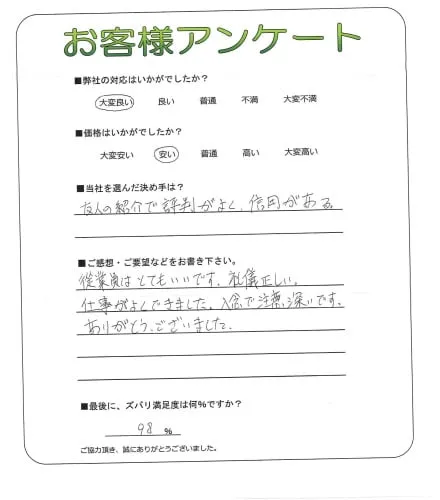 お客様アンケート
■弊社の対応はいかがでしたか?
大変良い 良い 普通 不満 大変不満
■価格はいかがでしたか?
大変安い 安い 普通 高い 大変高い
■当社を選んだ決め手は?
友人の紹介で評判がよく、信用がある。
■ご感想・ご要望などをお書き下さい。
従業員はとてもいいです。礼儀正しい。
仕事がよくできました。入念で注意深いです。
ありがとうございました。
■最後に、ズバリ満足度は何%ですか?
98 %
ご協力頂き、誠にありがとうございました。